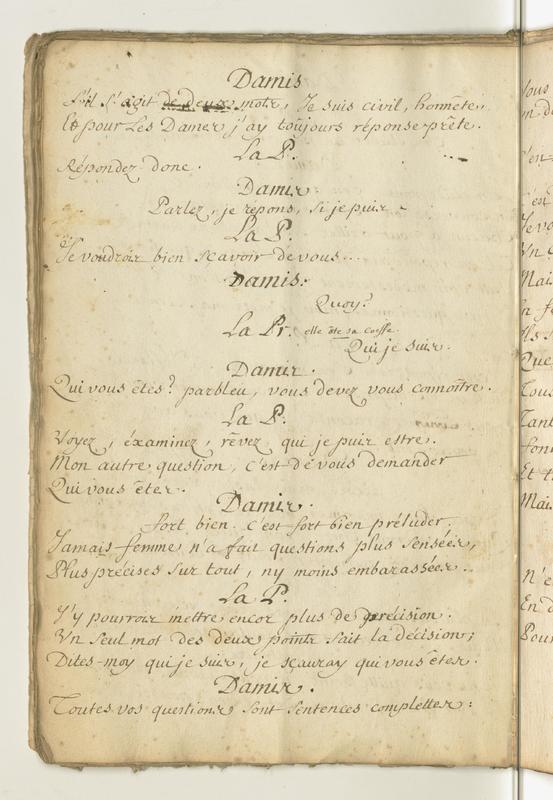 Damis
S'il s'agit de deux mots, Je suis civil, honnête,
Et pour Les Dames j'ay toûjours réponse prête.
La P.
Répondez donc.
Damis.
Parlez, je repons, si je puis -
La P.
Je voudrois bien scavoir de vous...
Damis:
Quoy?
La Pr. elle ôte sa coeffe.
Qui je suis.
Damis.
Qui vous êtes? parbleu, vous devez vous connoître.
La P.
Voyez, éxaminez, rêvez qui je puis estre.
Mon autre question, c'est de vous demander
Qui vous êtes.
Damis.
fort bien. c'est fort bien préluder.
Jamais femme n'a fait questions plus sensées,
Plus précises sur tout, ny moins embarassées..
La P.
J'y pourrois mettre encor plus de précision.
Un seul mot des deux points fait la décision;
Dites-moy qui je suis, je scauray qui vous êtes.
Damis.
Toutes vos questions sont sentences complettes:
Vous
en
Mais
Que
Tous
Tant
Et
Mais
N'e
En d
Pour